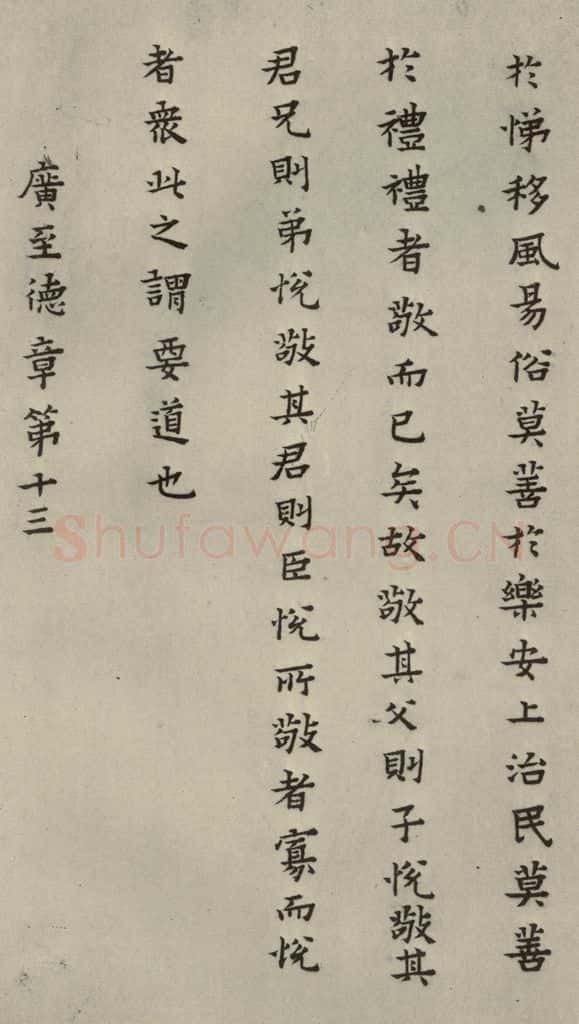 於悌移風易俗莫善於樂安上治民莫善
於禮禮者敬而已矣故敬其父則子悅敬其
君兄則弟悅敬其君則臣悅所敬者寡而悅
者衆此之謂要道也
廣至德章第十三
Shufawang.CN